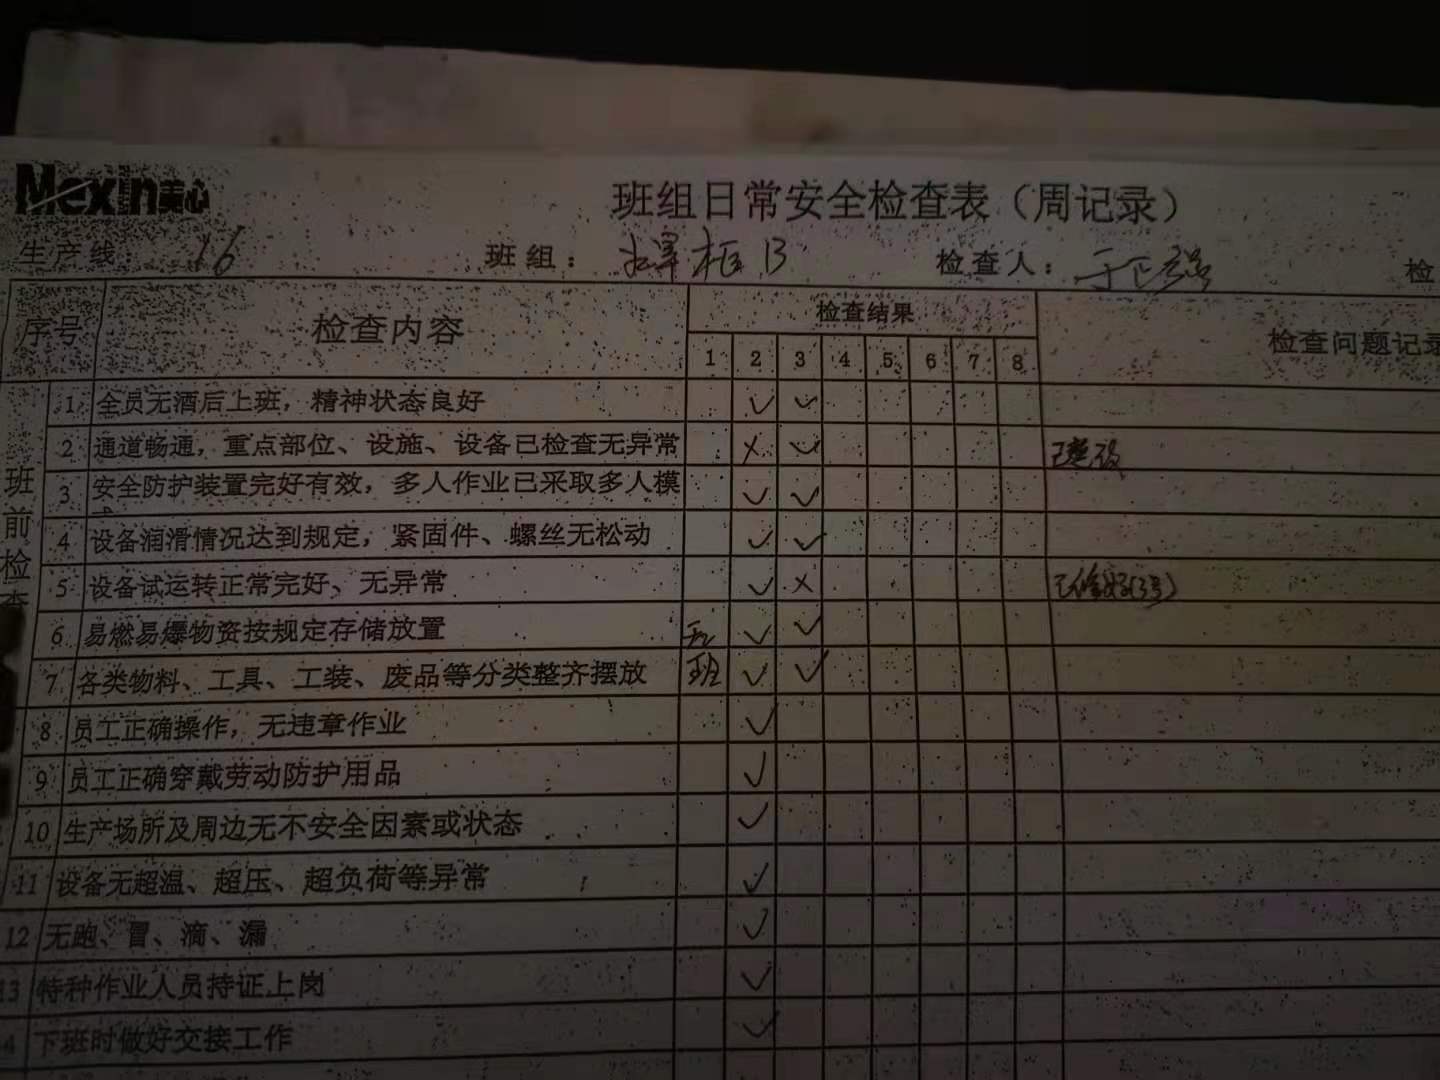 Mexin美心
班组日常安全检查表（周记录）
生产线： 16 班组： 焊框B 检查人： 检
序号 检查内容 检查结果 检查问题记录
1 2 3 4 5 6 7 8
班前检查
1 全员无酒后上班，精神状态良好 ✓ ✓
2 通道畅通，重点部位、设施、设备已检查无异常 × ✓
3 安全防护装置完好有效，多人作业已采取多人模 ✓ ✓
4 设备润滑情况达到规定，紧固件、螺丝无松动 ✓ ✓
5 设备试运转正常完好、无异常 ✓ × 已修好(3号)
6 易燃易爆物资按规定存储放置 ✓ ✓
7 各类物料、工具、工装、废品等分类整齐摆放 班 ✓ ✓
8 员工正确操作，无违章作业 ✓
9 员工正确穿戴劳动防护用品 ✓
10 生产场所及周边无不安全因素或状态 ✓
11 设备无超温、超压、超负荷等异常 ✓
12 无跑、冒、滴、漏 ✓
13 特种作业人员持证上岗 ✓
4 下班时做好交接工作 ✓